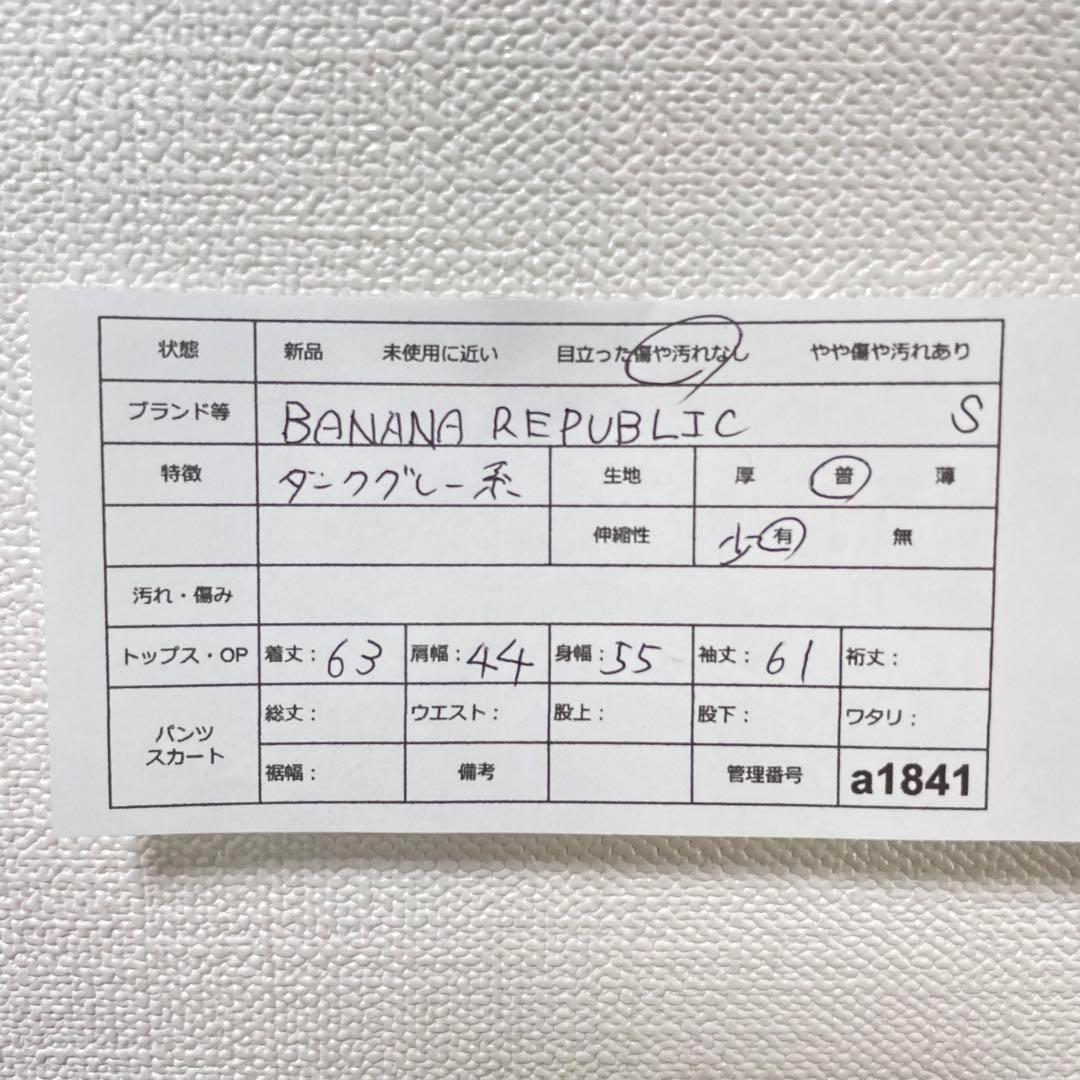 状態 新品 未使用に近い 目立った傷や汚れなし やや傷や汚れあり
ブランド等 BANANA REPUBLIC S
特徴 ダークグレー系 生地 厚 普 薄
伸縮性 少 有 無
汚れ・傷み
トップス・OP 着丈：63 肩幅：44 身幅：55 袖丈：61 裄丈：
パンツ スカート 総丈： ウエスト： 股上： 股下： ワタリ：
裾幅： 備考 管理番号 a1841